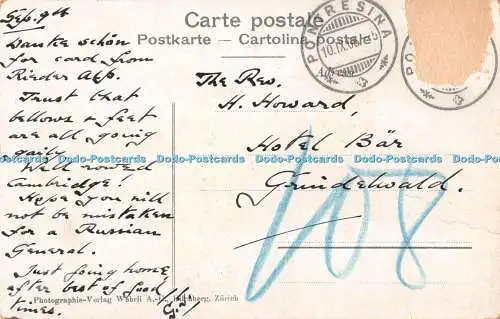 Sep. 9th
Danke schön
for card from
Rieder Alp.
Trust that
bellows & feet
are all going
gaily.
Well rowed
Cambridge!
Hope you will
not be mistaken
for a Russian
General.
Just going home
after best of good
times.
Carte postale
Postkarte - Cartolina postale
PONTRESINA
10.IX.08
The Rev.
H. Howard,
Hotel Bär
Grindelwald.
108
Photographie-Verlag Wehrli A.-G., Kilchberg, Zürich
Dodo-Postcards Dodo-Postcards Dodo-Postcards Dodo-Postcards Dodo-Postcards Dodo-Postcards